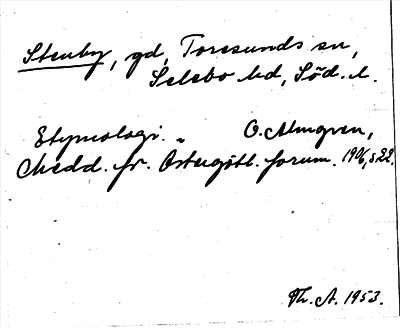 Stenby, gd, Toresunds sn,
Selebo hd, Söd. l.
Etymologi. O. Almgren,
Medd. fr. Östergötl. fornm. 1906, s 22.
Th. A. 1953.